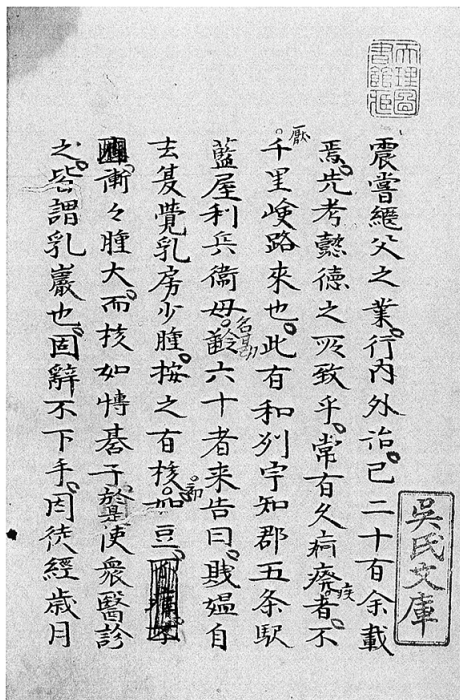 天理圖
書館藏
震嘗繼父之業。行内外治。已二十有余載
焉。先考懿德之所致乎。常有久痾癈疾者。不
厭千里嶮路來也。此有和州宇知郡五条駅
藍屋利兵衛母。名勘齡六十者来告曰。賤媼自
去夏覺乳房少腫。按之有核。初如豆。
漸々腫大。而核如博碁子。於是使衆醫診
之。皆謂乳巖也。固辭不下手。因徒經歳月
吳氏文庫